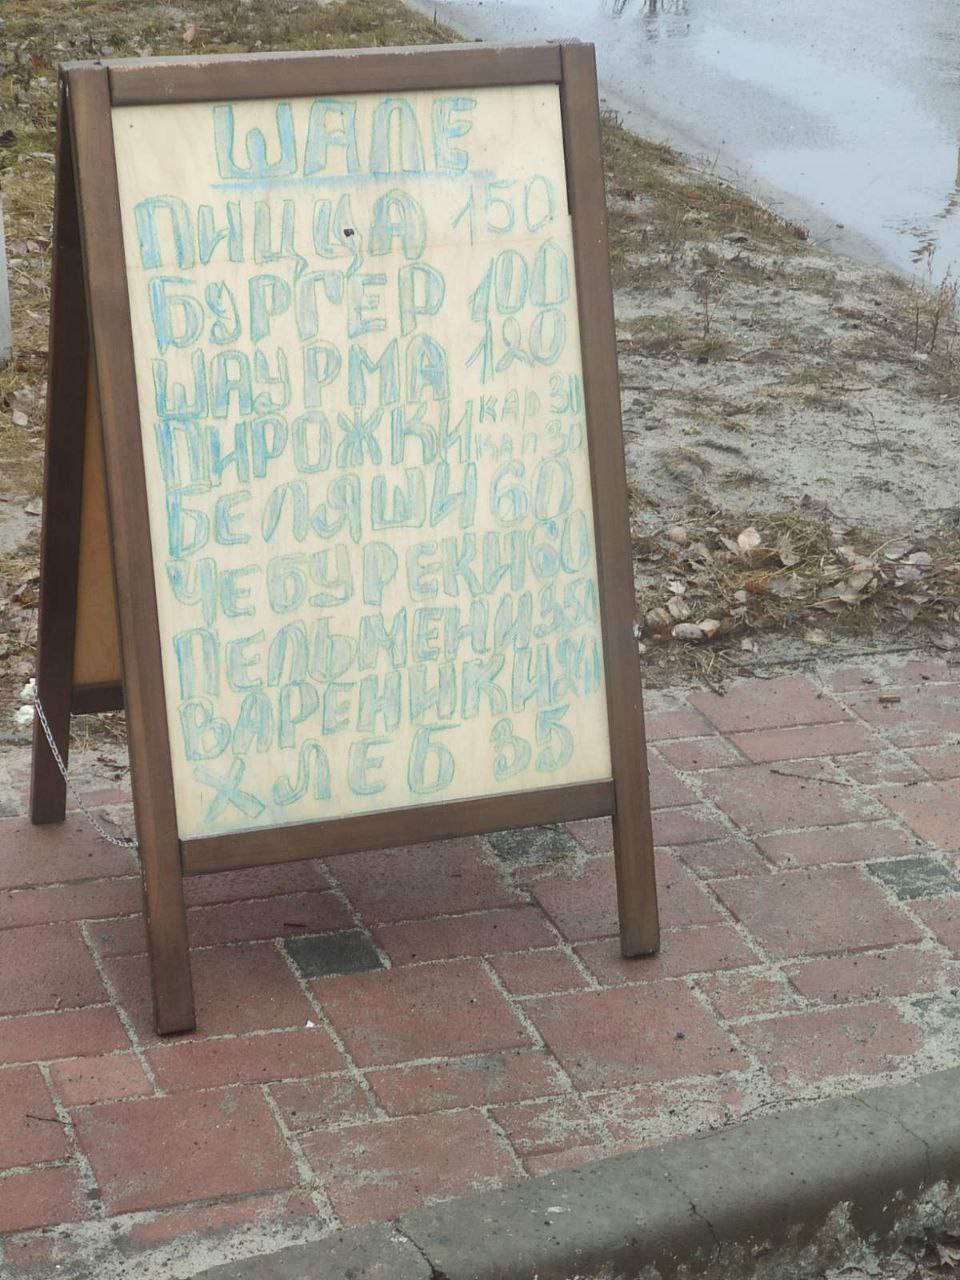 ШАЛЕ
ПИЦЦА 150
БУРГЕР 100
ШАУРМА 120
ПИРОЖКИ КАР 30
КАП 30
БЕЛЯШИ 60
ЧЕБУРЕКИ 60
ПЕЛЬМЕНИ 350
ВАРЕНИКИ
ХЛЕБ 35